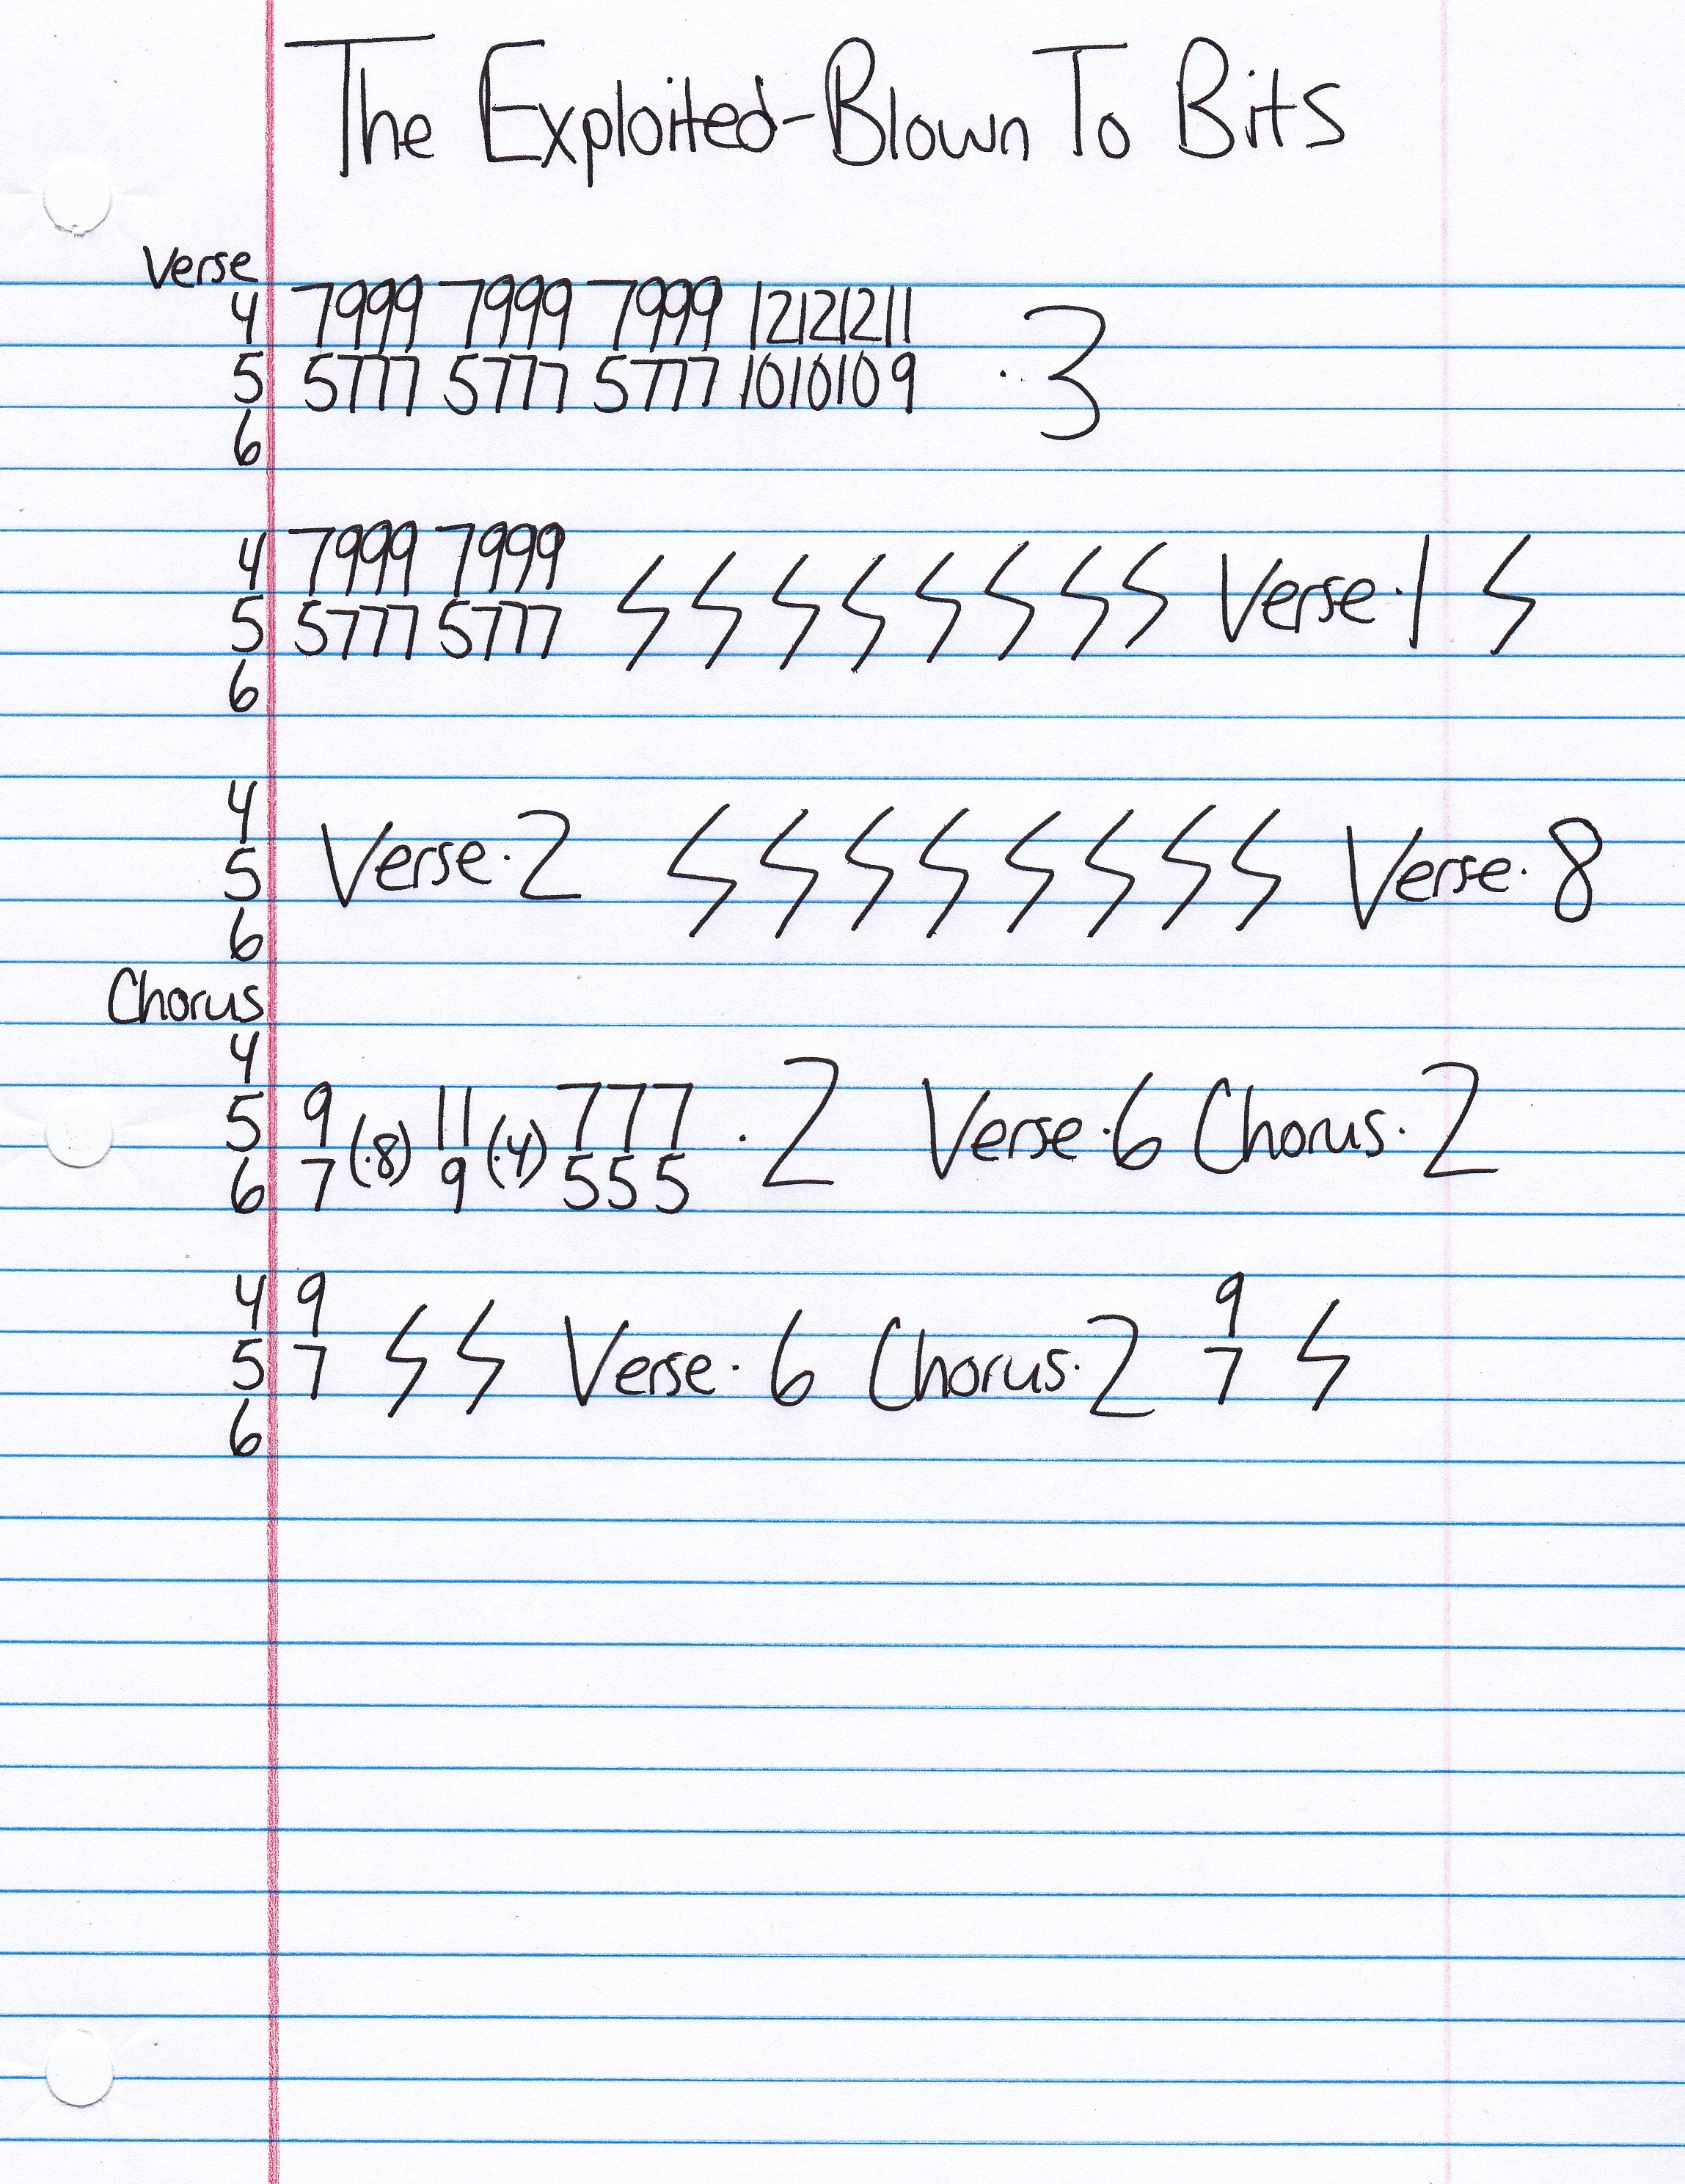 The Exploited-Blown To Bits
Verse
4 7999 7999 7999 12121211
5 5777 5777 5777 1010109 ·3
6
4 7999 7999
5 5777 5777 Verse·1
6
4
5 Verse·2 Verse·8
6
Chorus
4
5 9 (·8) 11 (·4) 777 ·2 Verse·6 Chorus·2
6 7 9 555
4 9 9
5 7 Verse·6 Chorus·2 7
6